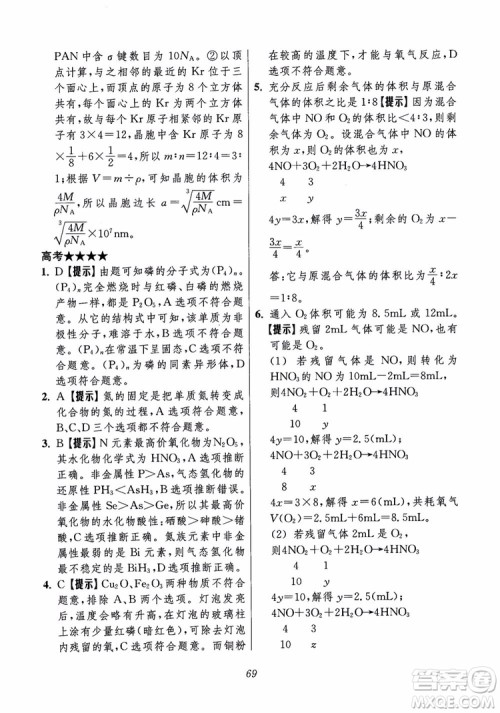 PAN 中含 σ 键数目为 10N_A。②以顶
点计算,与之相邻的最近的 Kr 位于三
个面心上,而每个顶点为 8 个立方体
共有,每个面心上的 Kr 为两个立方体
共有,故与之最近且距离相等的 Kr 原
子原子有 3×4=12 个;晶胞中原子数:8
×1/8+6×1/2=4,所以,m : n=12 : 4=3 :
1;根据 ρV=m÷可知,晶胞的体积为
4M/ρN_A,可知晶胞的边长为 ³√(4M/ρN_A) cm=
³√(4M/ρN_A)×10⁷nm。
高考★★★★
1. D【提示】由题可知磷的分子式为(P₄)ₙ。
(P₄)ₙ 完全燃烧时与红磷、白磷的燃烧
产物一样,都是 P₂O₅,A 选项不符合题
意。从它的结构式中可以得知其为非
极性分子,难溶于水,B 选项不符合题
意。(P₄)ₙ 常温下呈固态,C 选项不符
合题意。(P₄)ₙ 磷的同素异形体,D
2. A【提示】氮的固定是把单质氮转变成
化合物的氮的过程,A 选项符合题意。
3. B【提示】N 元素最高价氧化物为 N₂O₅,
其水化物化学式为 HNO₃,A 选项错误。
非金属性 P>As,气态氢化物的
还原性 PH₃<AsH₃,B 选项推断错误。
非金属性 Se>As>Ge,所以其最高价
氧化物的水化物酸性:硒酸>砷酸>锗
酸,C 选项推断正确。氮族元素中,非
金属性最弱的是 Bi 元素,所以气态氢化物
最不稳定的是 BiH₃,D 选项推断正确。
4. C【提示】Cu₂O、Fe₂O₃ 两种物质不符合
题意,排除 A、B 选项。灯泡发亮后,
温度会略有升高,在灯泡的玻璃柱
上有少量红磷(暗红色),则其放在灯泡
内可吸收氧气,C 选项符合题意。而铜粉
在较高的温度下,才能与氧气反应,D
选项不符合题意。
5. 充分反应后剩余气体的体积与原混合
气体的体积之比 1 : 8【提示】因为气体
体积减少 6/8,小于 7/8,所以,NO 不足,剩
余气体为 O₂。设混合气体中 NO 的体
积为 x。
4NO+3O₂+2H₂O→4HNO₃
4 3
x y
4y=3x,解得 y=3x/4;剩余的 O₂ 为 x−
3x/4=x/4
答:它与原混合气体的体积比为 x/4 : 2x
=1 : 8。
6. 通入 O₂ 体积可能为 8.5mL 或 12mL。
【提示】残留 2mL 气体可能是 NO,也
有可能是 O₂。
(1) 若残留气体是 NO,则转化为
HNO₃ 的 NO 为 10mL−2mL=8mL。
4NO₂+O₂+2H₂O→4HNO₃
4 1
10 y
4y=10,解得 y=2.5(mL)
4NO+3O₂+2H₂O→4HNO₃
4 3
8 x
4x=3×8,解得 x=6(mL),共耗氧气
V(O₂)=2.5mL+6mL=8.5mL。
(2) 若残留气体是 O₂,
4NO₂+O₂+2H₂O→4HNO₃
4 1
10 y
4y=10,解得 y=2.5(mL)
4NO+3O₂+2H₂O→4HNO₃
4 3
10 z
69